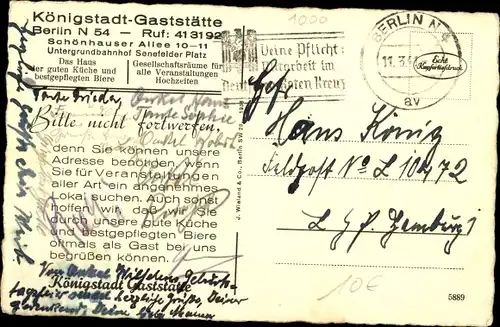 Königstadt-Gaststätte
Berlin N 54 — Ruf: 413192
Schönhauser Allee 10—11
Untergrundbahnhof Senefelder Platz
Das Haus
der guten Küche und
bestgepflegten Biere
Gesellschaftsräume für
alle Veranstaltungen
Hochzeiten
Tante Frieda,
Onkel
Tante
Onkel
Bitte nicht fortwerfen,
denn Sie könnten unsere
Adresse benötigen, wenn
Sie für Veranstaltungen
aller Art ein angenehmes
Lokal suchen. Auch sonst
hoffen wir, daß wir Sie
durch unsere gute Küche
und bestgepflegten Biere
oftmals als Gast bei uns
begrüßen können.
Königstadt Gaststätte
Von Onkel Wilhelms Geburts-
tagsfeier sendet herzliche Grüße, Deiner
gedenkend, Deine
J. Wieland & Co., Berlin SW
1000
Deine Pflicht:
Mitarbeit im
Roten Kreuz
BERLIN N 4
av
Echte
Kupfertiefdruck
Hans König
Feldpost No L 10472
L g p. Hamburg 1
10€
5889